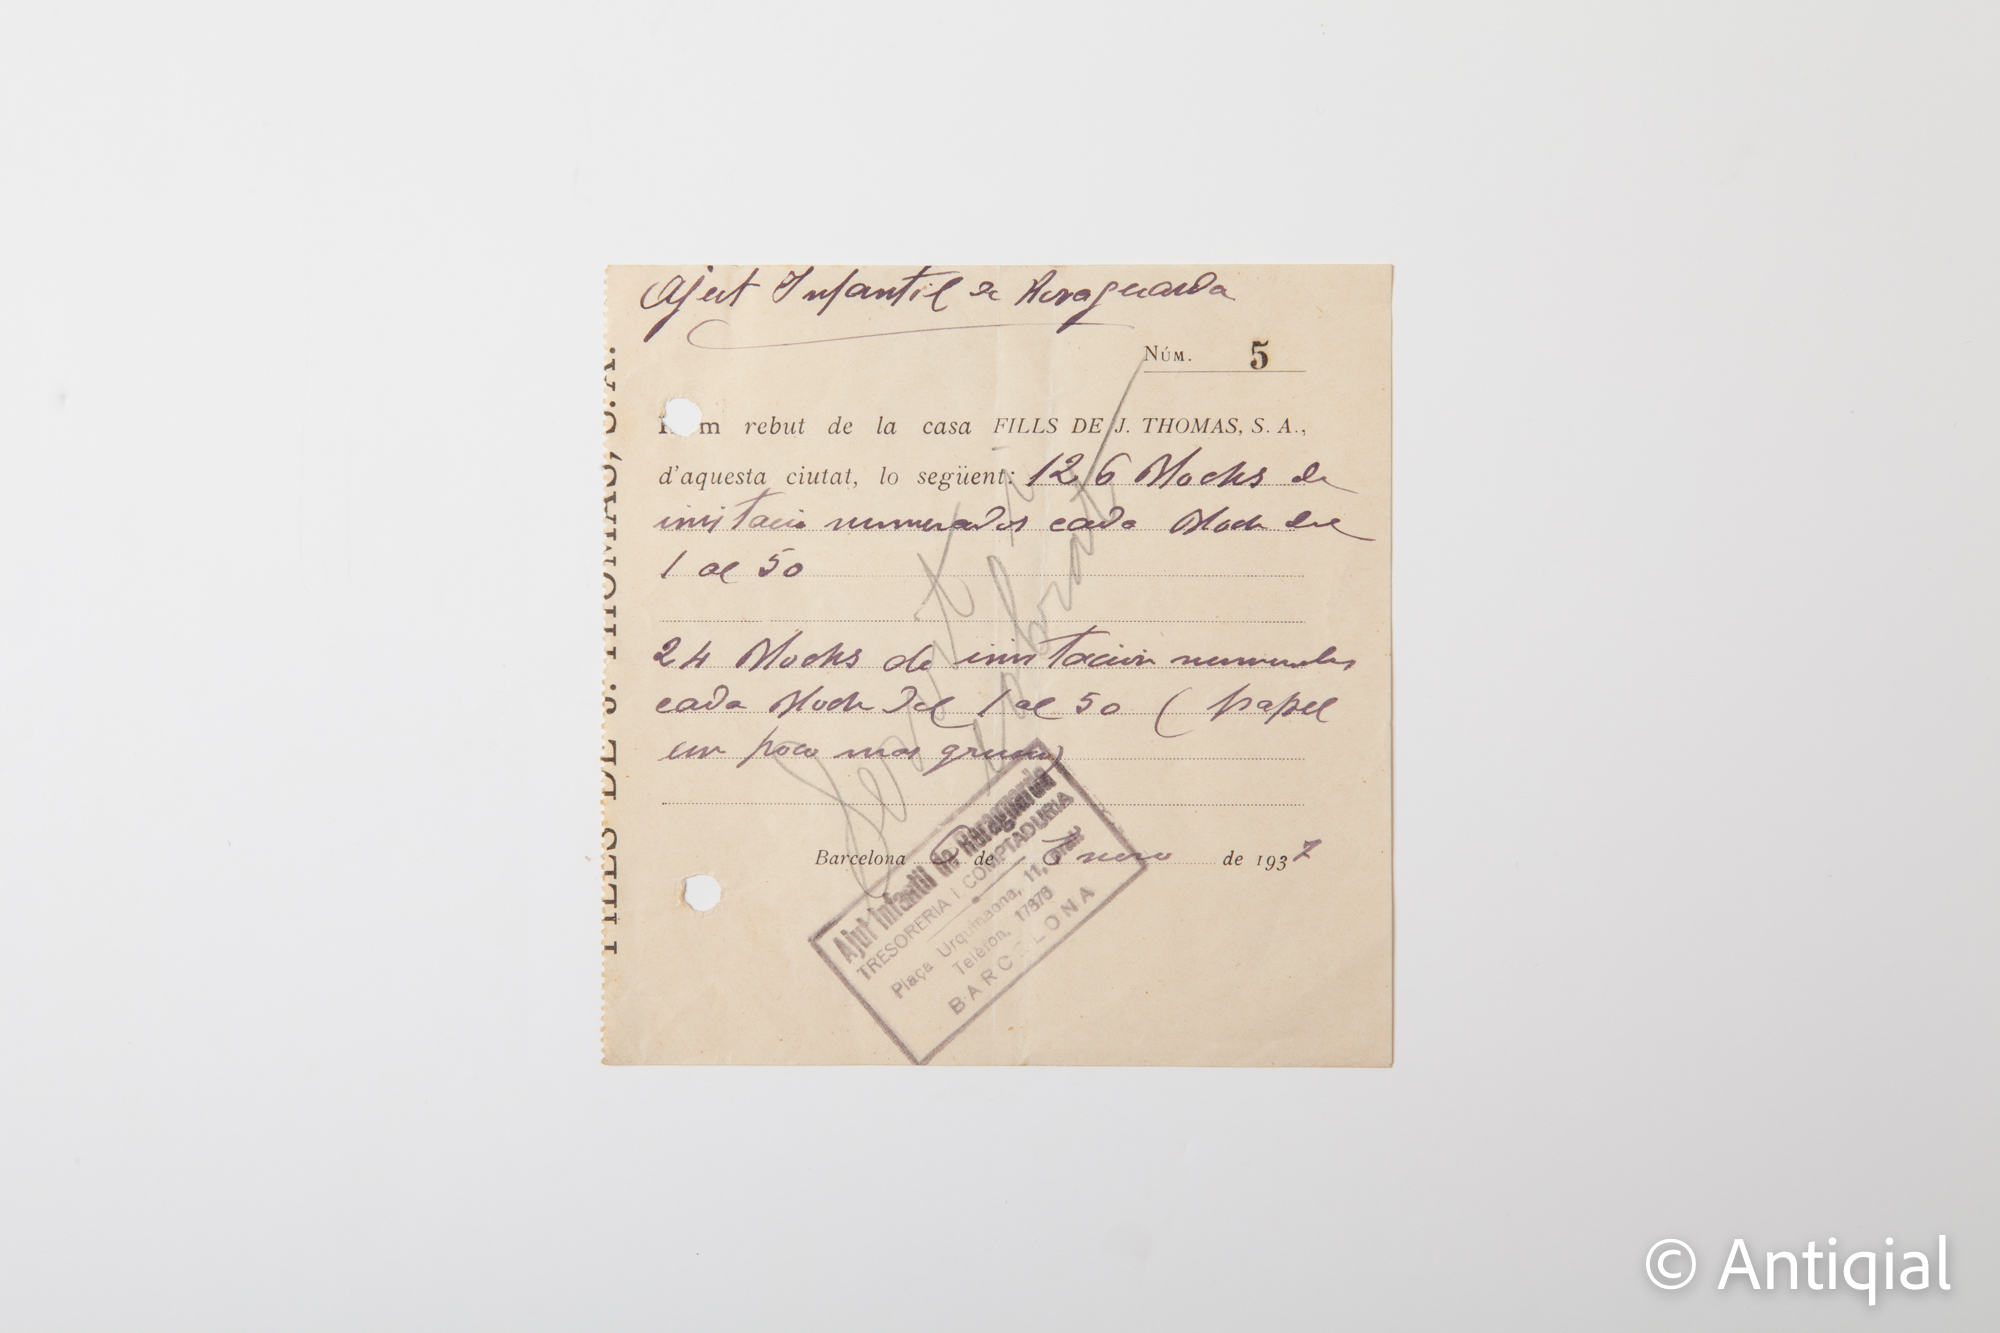 Ajut Infantil de Reraguarda
NÚM. 5
m rebut de la casa FILLS DE J. THOMAS, S. A.,
d'aquesta ciutat, lo següent: 126 Blocks de
invitació numerados cada Block del
1 al 50
24 Blocks de invitación numerados
cada Block del 1 al 50 (papel
un poco mas grueso)
Barcelona de Enero de 1937
Ajut Infantil de Reraguarda
TRESORERIA I COMPTADURIA
Plaça Urquinaona, 11, pral.
Telèfon, 17878
BARCELONA
FILLS DE J. THOMAS, S. A.
© Antiqial